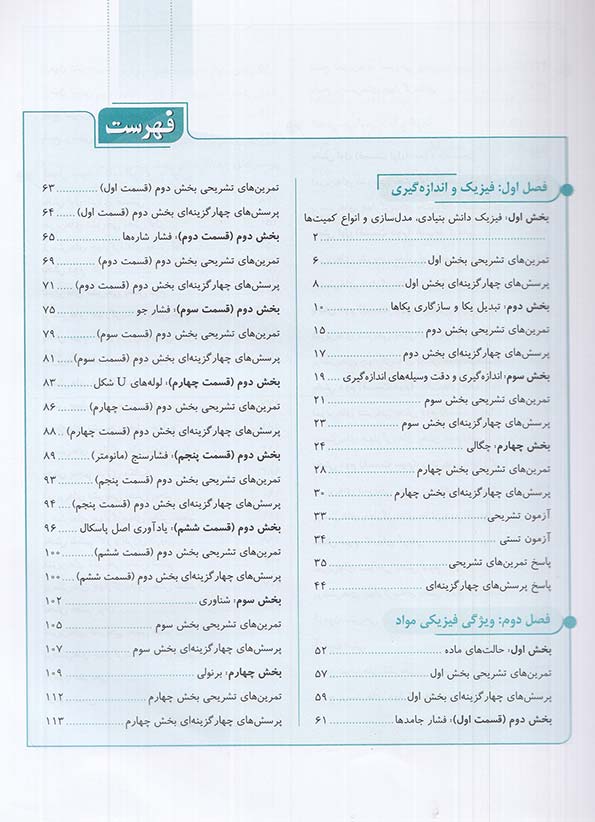 فهرست
فصل اول: فیزیک و اندازه‌گیری
بخش اول: فیزیک دانش بنیادی، مدل‌سازی و انواع کمیت‌ها
................ ۲
تمرین‌های تشریحی بخش اول ................ ۶
پرسش‌های چهارگزینه‌ای بخش اول ................ ۸
بخش دوم: تبدیل یکا و سازگاری یکاها ................ ۱۰
تمرین‌های تشریحی بخش دوم ................ ۱۵
پرسش‌های چهارگزینه‌ای بخش دوم ................ ۱۷
بخش سوم: اندازه‌گیری و دقت وسیله‌های اندازه‌گیری .... ۱۹
تمرین‌های تشریحی بخش سوم ................ ۲۱
پرسش‌های چهارگزینه‌ای بخش سوم ................ ۲۳
بخش چهارم: چگالی ................ ۲۴
تمرین‌های تشریحی بخش چهارم ................ ۲۸
پرسش‌های چهارگزینه‌ای بخش چهارم ................ ۳۰
آزمون تشریحی ................ ۳۳
آزمون تستی ................ ۳۴
پاسخ تمرین‌های تشریحی ................ ۳۵
پاسخ پرسش‌های چهارگزینه‌ای ................ ۴۴
فصل دوم: ویژگی فیزیکی مواد
بخش اول: حالت‌های ماده ................ ۵۲
تمرین‌های تشریحی بخش اول ................ ۵۷
پرسش‌های چهارگزینه‌ای بخش اول ................ ۵۹
بخش دوم (قسمت اول): فشار جامدها ................ ۶۱
تمرین‌های تشریحی بخش دوم (قسمت اول) ............ ۶۳
پرسش‌های چهارگزینه‌ای بخش دوم (قسمت اول) ...... ۶۴
بخش دوم (قسمت دوم): فشار شاره‌ها ................ ۶۵
تمرین‌های تشریحی بخش دوم (قسمت دوم) ............ ۶۹
پرسش‌های چهارگزینه‌ای بخش دوم (قسمت دوم) ...... ۷۱
بخش دوم (قسمت سوم): فشار جو ................ ۷۵
تمرین‌های تشریحی بخش دوم (قسمت سوم) ............ ۷۹
پرسش‌های چهارگزینه‌ای بخش دوم (قسمت سوم) ...... ۸۱
بخش دوم (قسمت چهارم): لوله‌های U شکل .......... ۸۳
تمرین‌های تشریحی بخش دوم (قسمت چهارم) ........ ۸۶
پرسش‌های چهارگزینه‌ای بخش دوم (قسمت چهارم) .... ۸۸
بخش دوم (قسمت پنجم): فشارسنج (مانومتر) .......... ۸۹
تمرین‌های تشریحی بخش دوم (قسمت پنجم) .......... ۹۳
پرسش‌های چهارگزینه‌ای بخش دوم (قسمت پنجم) .... ۹۴
بخش دوم (قسمت ششم): یادآوری اصل پاسکال ...... ۹۶
تمرین‌های تشریحی بخش دوم (قسمت ششم) ........ ۱۰۰
پرسش‌های چهارگزینه‌ای بخش دوم (قسمت ششم) .... ۱۰۰
بخش سوم: شناوری ................ ۱۰۲
تمرین‌های تشریحی بخش سوم ................ ۱۰۵
پرسش‌های چهارگزینه‌ای بخش سوم ................ ۱۰۷
بخش چهارم: برنولی ................ ۱۰۹
تمرین‌های تشریحی بخش چهارم ................ ۱۱۲
پرسش‌های چهارگزینه‌ای بخش چهارم ................ ۱۱۳